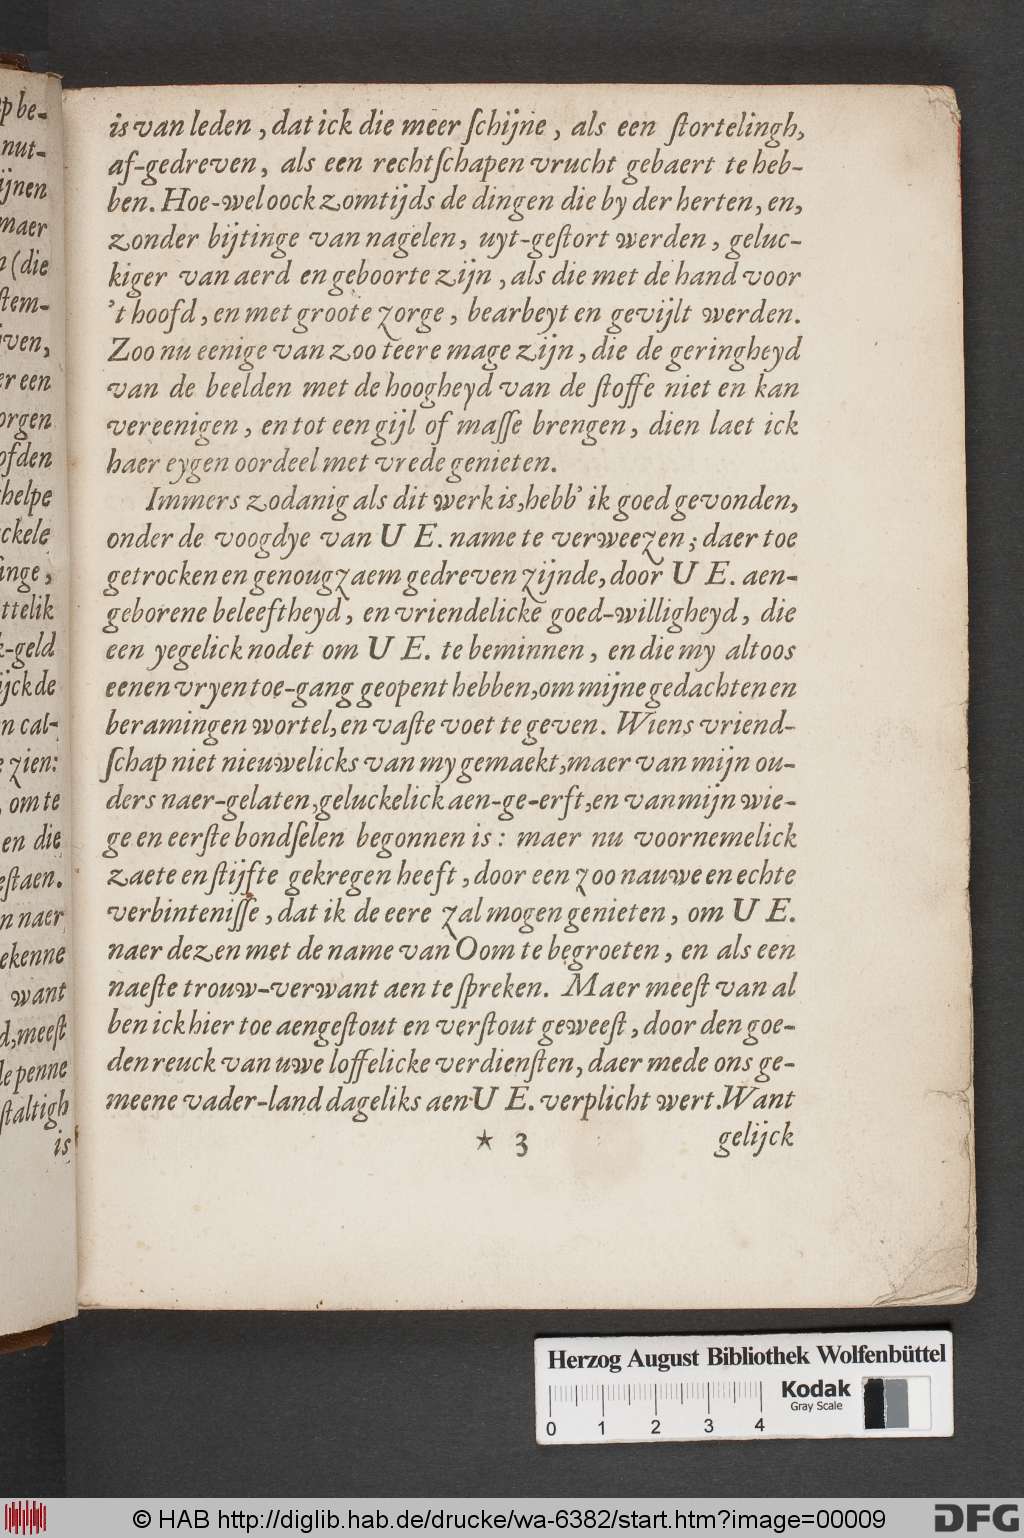 is van leden, dat ick die meer ſchijne, als een ſtortelingh,
af-gedreven, als een rechtſchapen vrucht gebaert te heb-
ben. Hoe-wel oock zomtijds de dingen die by der herten, en,
zonder bijtinge van nagelen, uyt-geſtort werden, geluc-
kiger van aerd en geboorte zijn, als die met de hand voor
't hoofd, en met groote zorge, bearbeyt en gevijlt werden.
Zoo nu eenige van zoo teere mage zijn, die de geringheyd
van de beelden met de hoogheyd van de ſtoffe niet en kan
vereenigen, en tot een gijl of maſſe brengen, dien laet ick
haer eygen oordeel met vrede genieten.
Immers zodanig als dit werk is, hebb' ik goed gevonden,
onder de voogdye van U E. name te verweezen; daer toe
getrocken en genougzaem gedreven zijnde, door U E. aen-
geborene beleeftheyd, en vriendelicke goed-willigheyd, die
een yegelick nodet om U E. te beminnen, en die my altoos
eenen vryen toe-gang geopent hebben, om mijne gedachten en
beramingen wortel, en vaſte voet te geven. Wiens vriend-
ſchap niet nieuwelicks van my gemaekt, maer van mijn ou-
ders naer-gelaten, geluckelick aen-ge-erft, en van mijn wie-
ge en eerſte bondſelen begonnen is: maer nu voornemelick
zaete en ſtijfte gekregen heeft, door een zoo nauwe en echte
verbinteniſſe, dat ik de eere zal mogen genieten, om U E.
naer dezen met de name van Oom te begroeten, en als een
naeſte trouw-verwant aen te ſpreken. Maer meeſt van al
ben ick hier toe aengeſtout en verſtout geweeſt, door den goe-
den reuck van uwe loffelicke verdienſten, daer mede ons ge-
meene vader-land dageliks aen U E. verplicht wert. Want
★ 3 gelijck
p be-
nut-
ijnen
maer
n (die
ſtem-
ven,
er een
orgen
ofden
helpe
ckele
inge,
ttelik
k-geld
ijck de
n cal-
e zien:
, om te
en die
eſtaen.
n naer
ekenne
want
d, meeſt
de penne
ſtaltigh
is
Herzog August Bibliothek Wolfenbüttel
Kodak
Gray Scale
0 1 2 3 4
© HAB http://diglib.hab.de/drucke/wa-6382/start.htm?image=00009
DFG